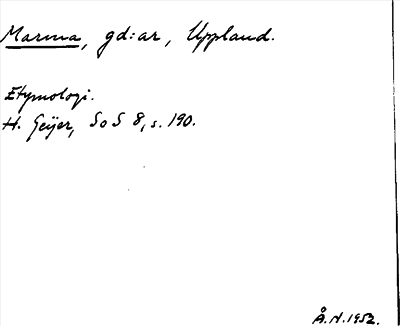 Marma, gd:ar, Uppland.
Etymologi.
H. Geijer, SoS 8, s. 190.
Å.N.1952.